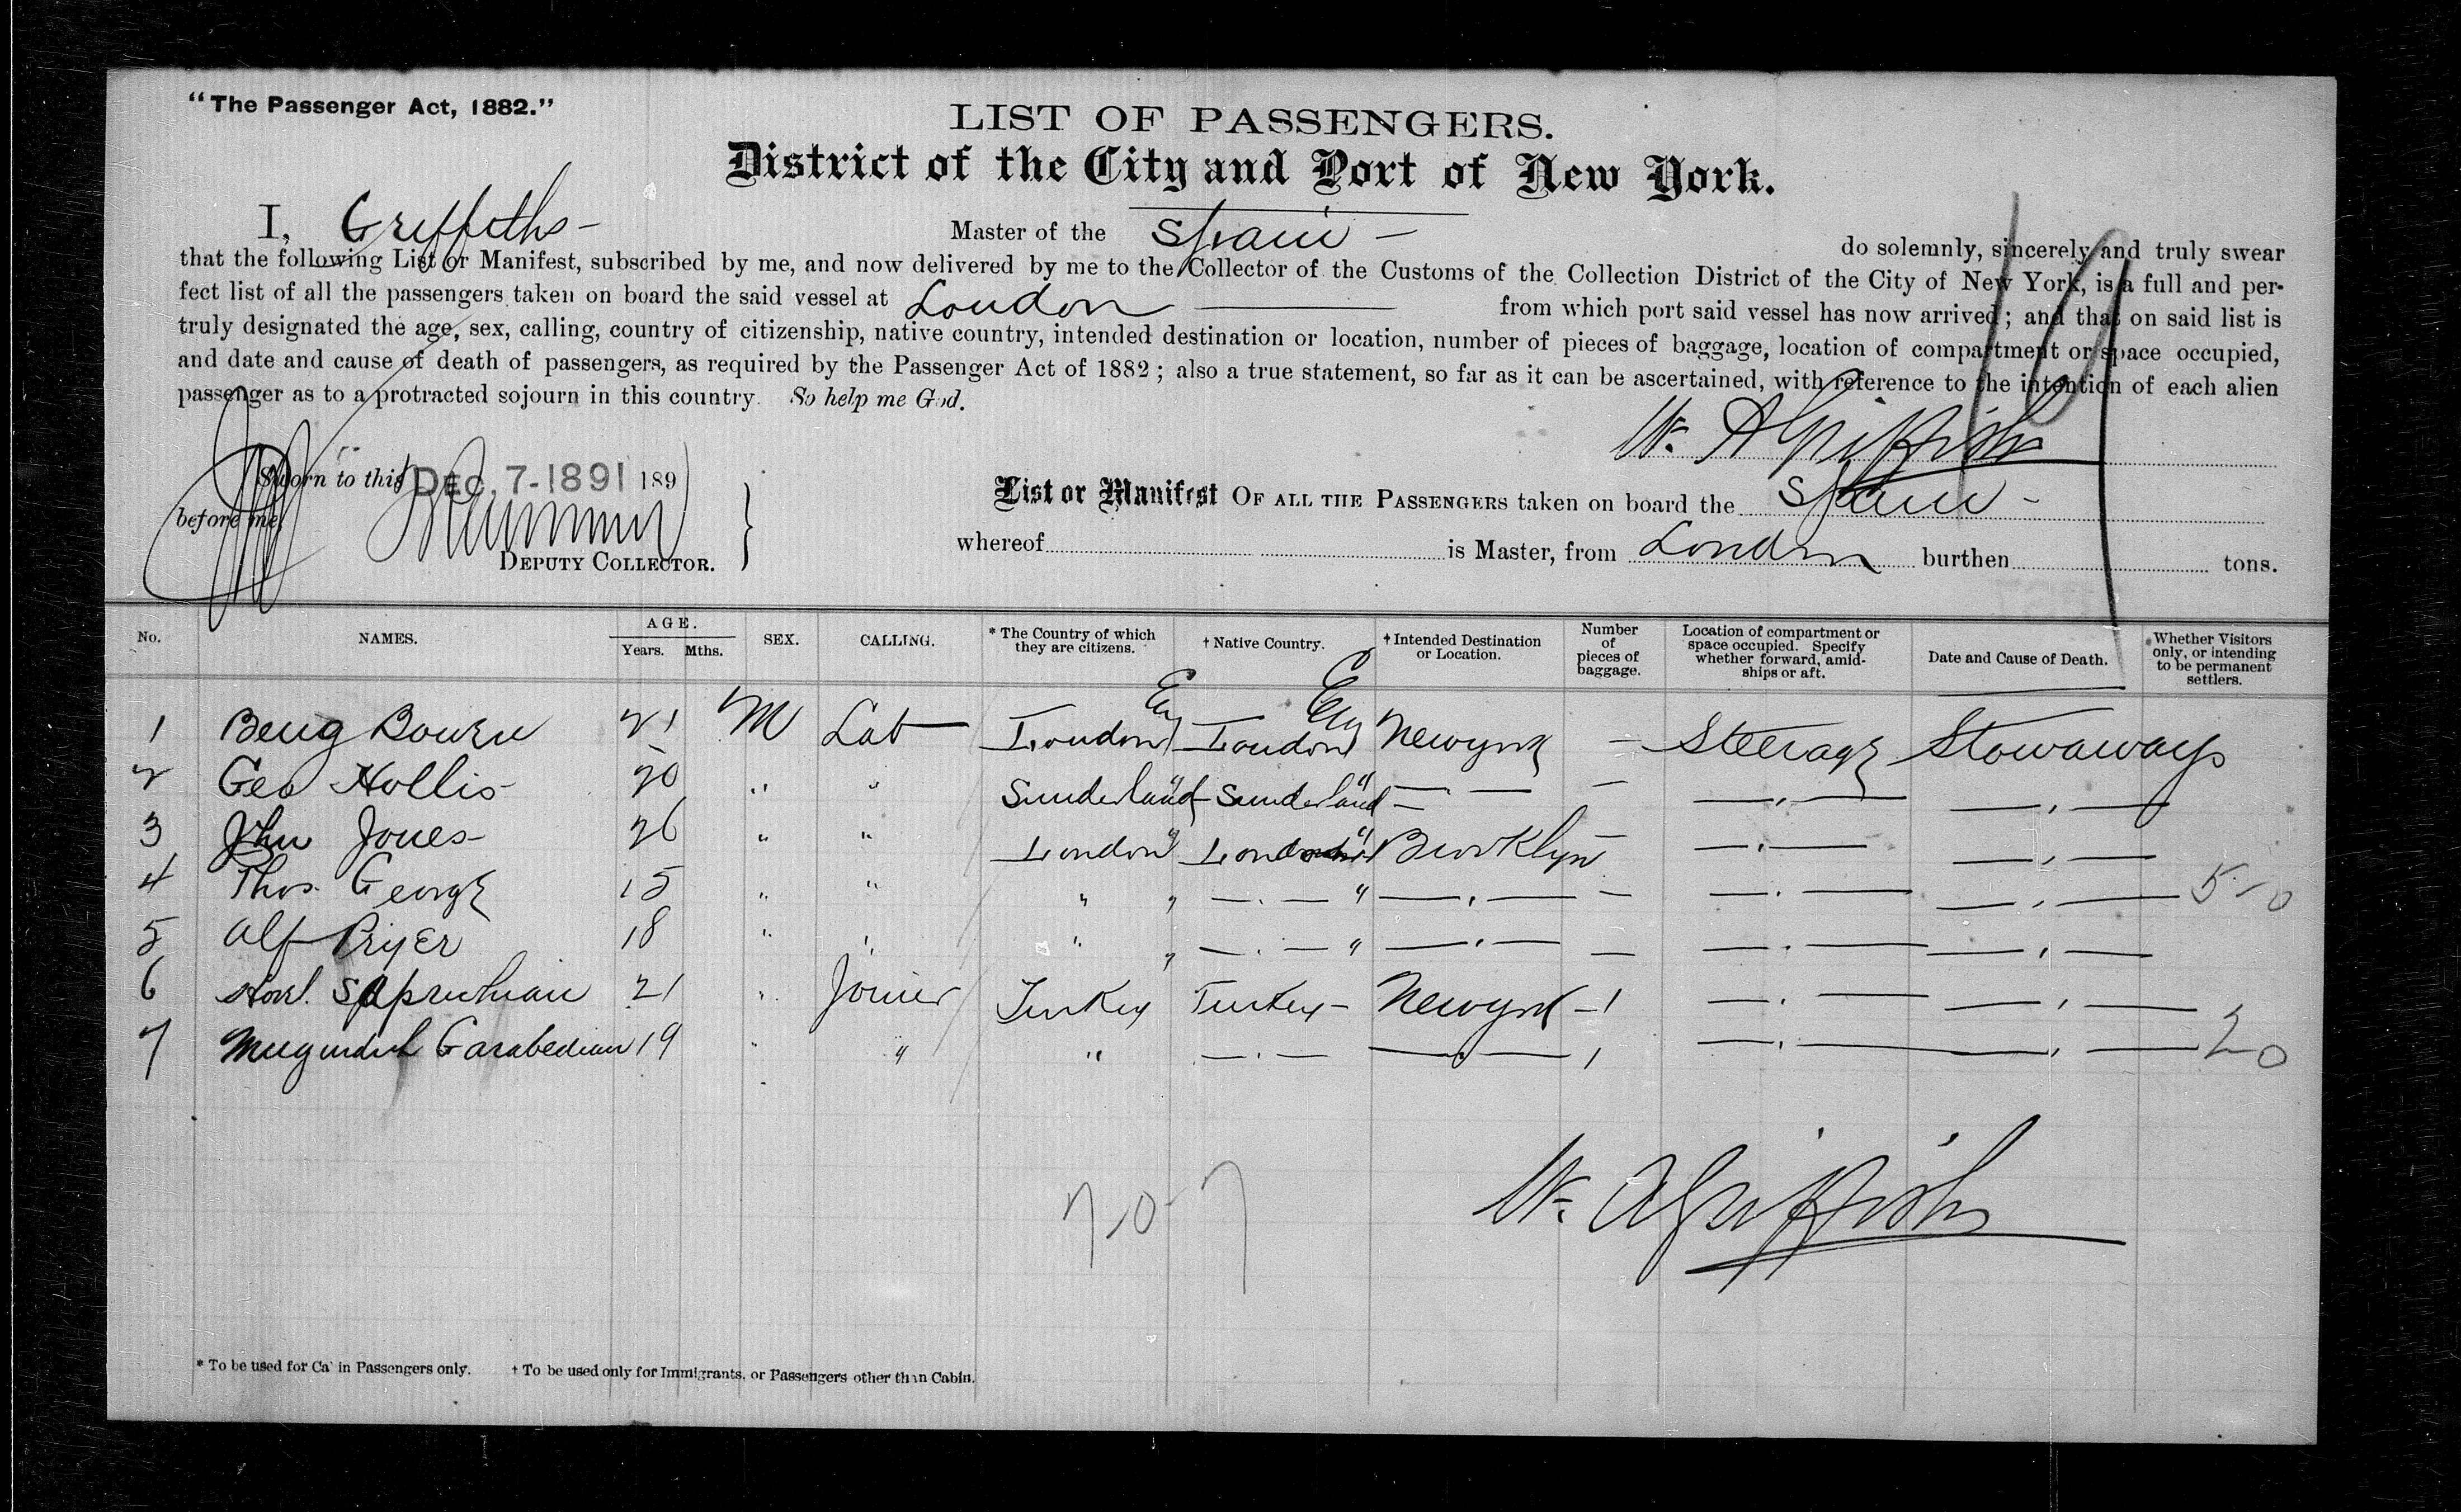 "The Passenger Act, 1882."
LIST OF PASSENGERS.
District of the City and Port of New York.
I, Griffiths - Master of the Spain - do solemnly, sincerely and truly swear
that the following List or Manifest, subscribed by me, and now delivered by me to the Collector of the Customs of the Collection District of the City of New York, is a full and per-
fect list of all the passengers taken on board the said vessel at London from which port said vessel has now arrived; and that on said list is
truly designated the age, sex, calling, country of citizenship, native country, intended destination or location, number of pieces of baggage, location of compartment or space occupied,
and date and cause of death of passengers, as required by the Passenger Act of 1882; also a true statement, so far as it can be ascertained, with reference to the intention of each alien
passenger as to a protracted sojourn in this country. So help me God.
W. A Griffiths
Sworn to this DEC. 7-1891 189
before me,
DEPUTY COLLECTOR.
List or Manifest OF ALL THE PASSENGERS taken on board the Spain -
whereof is Master, from London burthen tons.
No. NAMES. AGE. Years. Mths. SEX. CALLING. * The Country of which they are citizens. † Native Country. † Intended Destination or Location. Number of pieces of baggage. Location of compartment or space occupied. Specify whether forward, amid-ships or aft. Date and Cause of Death. Whether Visitors only, or intending to be permanent settlers.
1 Benj Bowen 21 M Lab London Eng London Eng Newyork - Steerage Stowaways
2 Geo Hollis 20 " " Sunderland " Sunderland " — " — - — " — — " —
3 Jhn Jones 26 " " London " London " Brooklyn - — " — — " —
4 Thos. George 15 " " " " — " — " — " — - — " — — " — 5-0
5 Alf Pryer 18 " " " " — " — " — " — - — " — — " —
6 21 " Joiner Turkey Turkey - Newyork - 1 — " — — " —
7 Garabedian 19 " " " — " — — " — 1 — " — — " — 2-0
7-0-7
W. A Griffiths
* To be used for Cabin Passengers only. † To be used only for Immigrants, or Passengers other than Cabin.